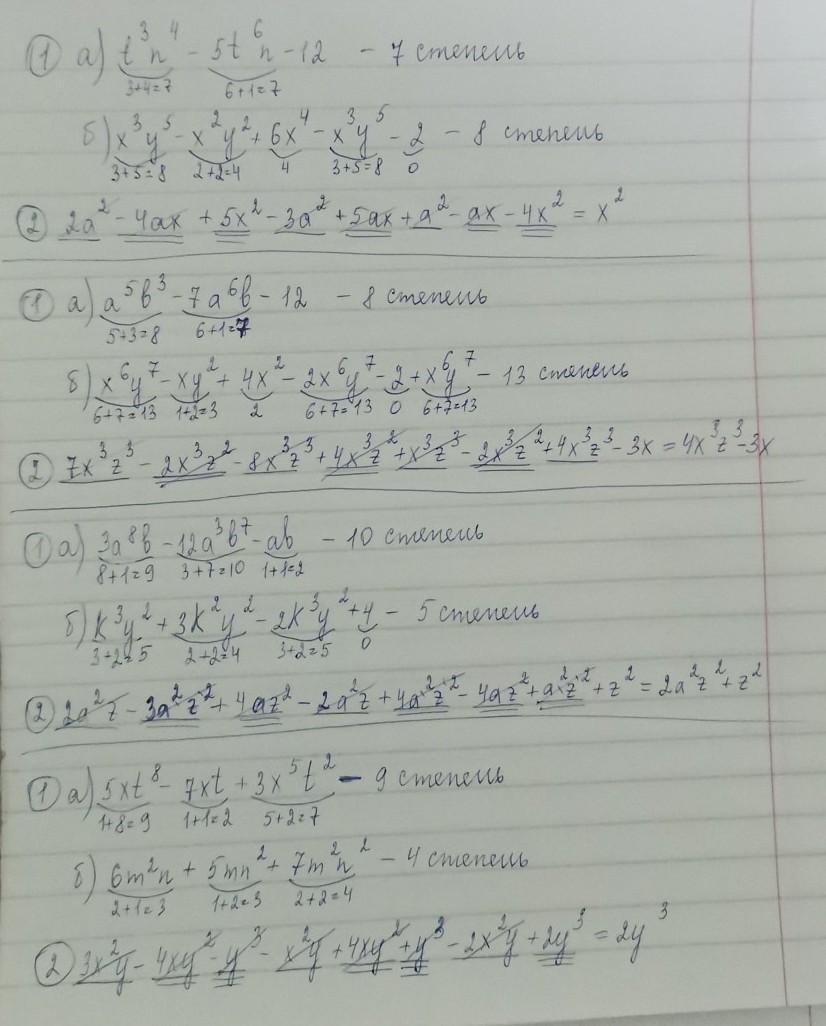 ① а) t³n⁴ - 5t⁶n - 12 - 7 степень
3+4=7 6+1=7
б) x³y⁵ - x²y² + 6x⁴ - x³y⁵ - 2 - 8 степень
3+5=8 2+2=4 4 3+5=8 0
② 2a² - 4ax + 5x² - 3a² + 5ax + a² - ax - 4x² = x²
① а) a⁵b³ - 7a⁶b - 12 - 8 степень
5+3=8 6+1=7
б) x⁶y⁷ - xy² + 4x² - 2x⁶y⁷ - 2 + x⁶y⁷ - 13 степень
6+7=13 1+2=3 2 6+7=13 0 6+7=13
② 7x³z³ - 2x³z² - 8x³z³ + 4x³z² + x³z³ - 2x³z² + 4x³z³ - 3x = 4x³z³ - 3x
① а) 3a⁸b - 12a³b⁷ - ab - 10 степень
8+1=9 3+7=10 1+1=2
б) k³y² + 3k²y² - 2k³y² + 4 - 5 степень
3+2=5 2+2=4 3+2=5 0
② 2a²z - 3a²z² + 4az² - 2a²z + 4a²z² - 4az² + a²z² + z² = 2a²z² + z²
① а) 5xt⁸ - 7xt + 3x⁵t² - 9 степень
1+8=9 1+1=2 5+2=7
б) 6m²n + 5mn² + 7m²n² - 4 степень
2+1=3 1+2=3 2+2=4
② 3x²y - 4xy² - y³ - x²y + 4xy² + y³ - 2x²y + 2y³ = 2y³